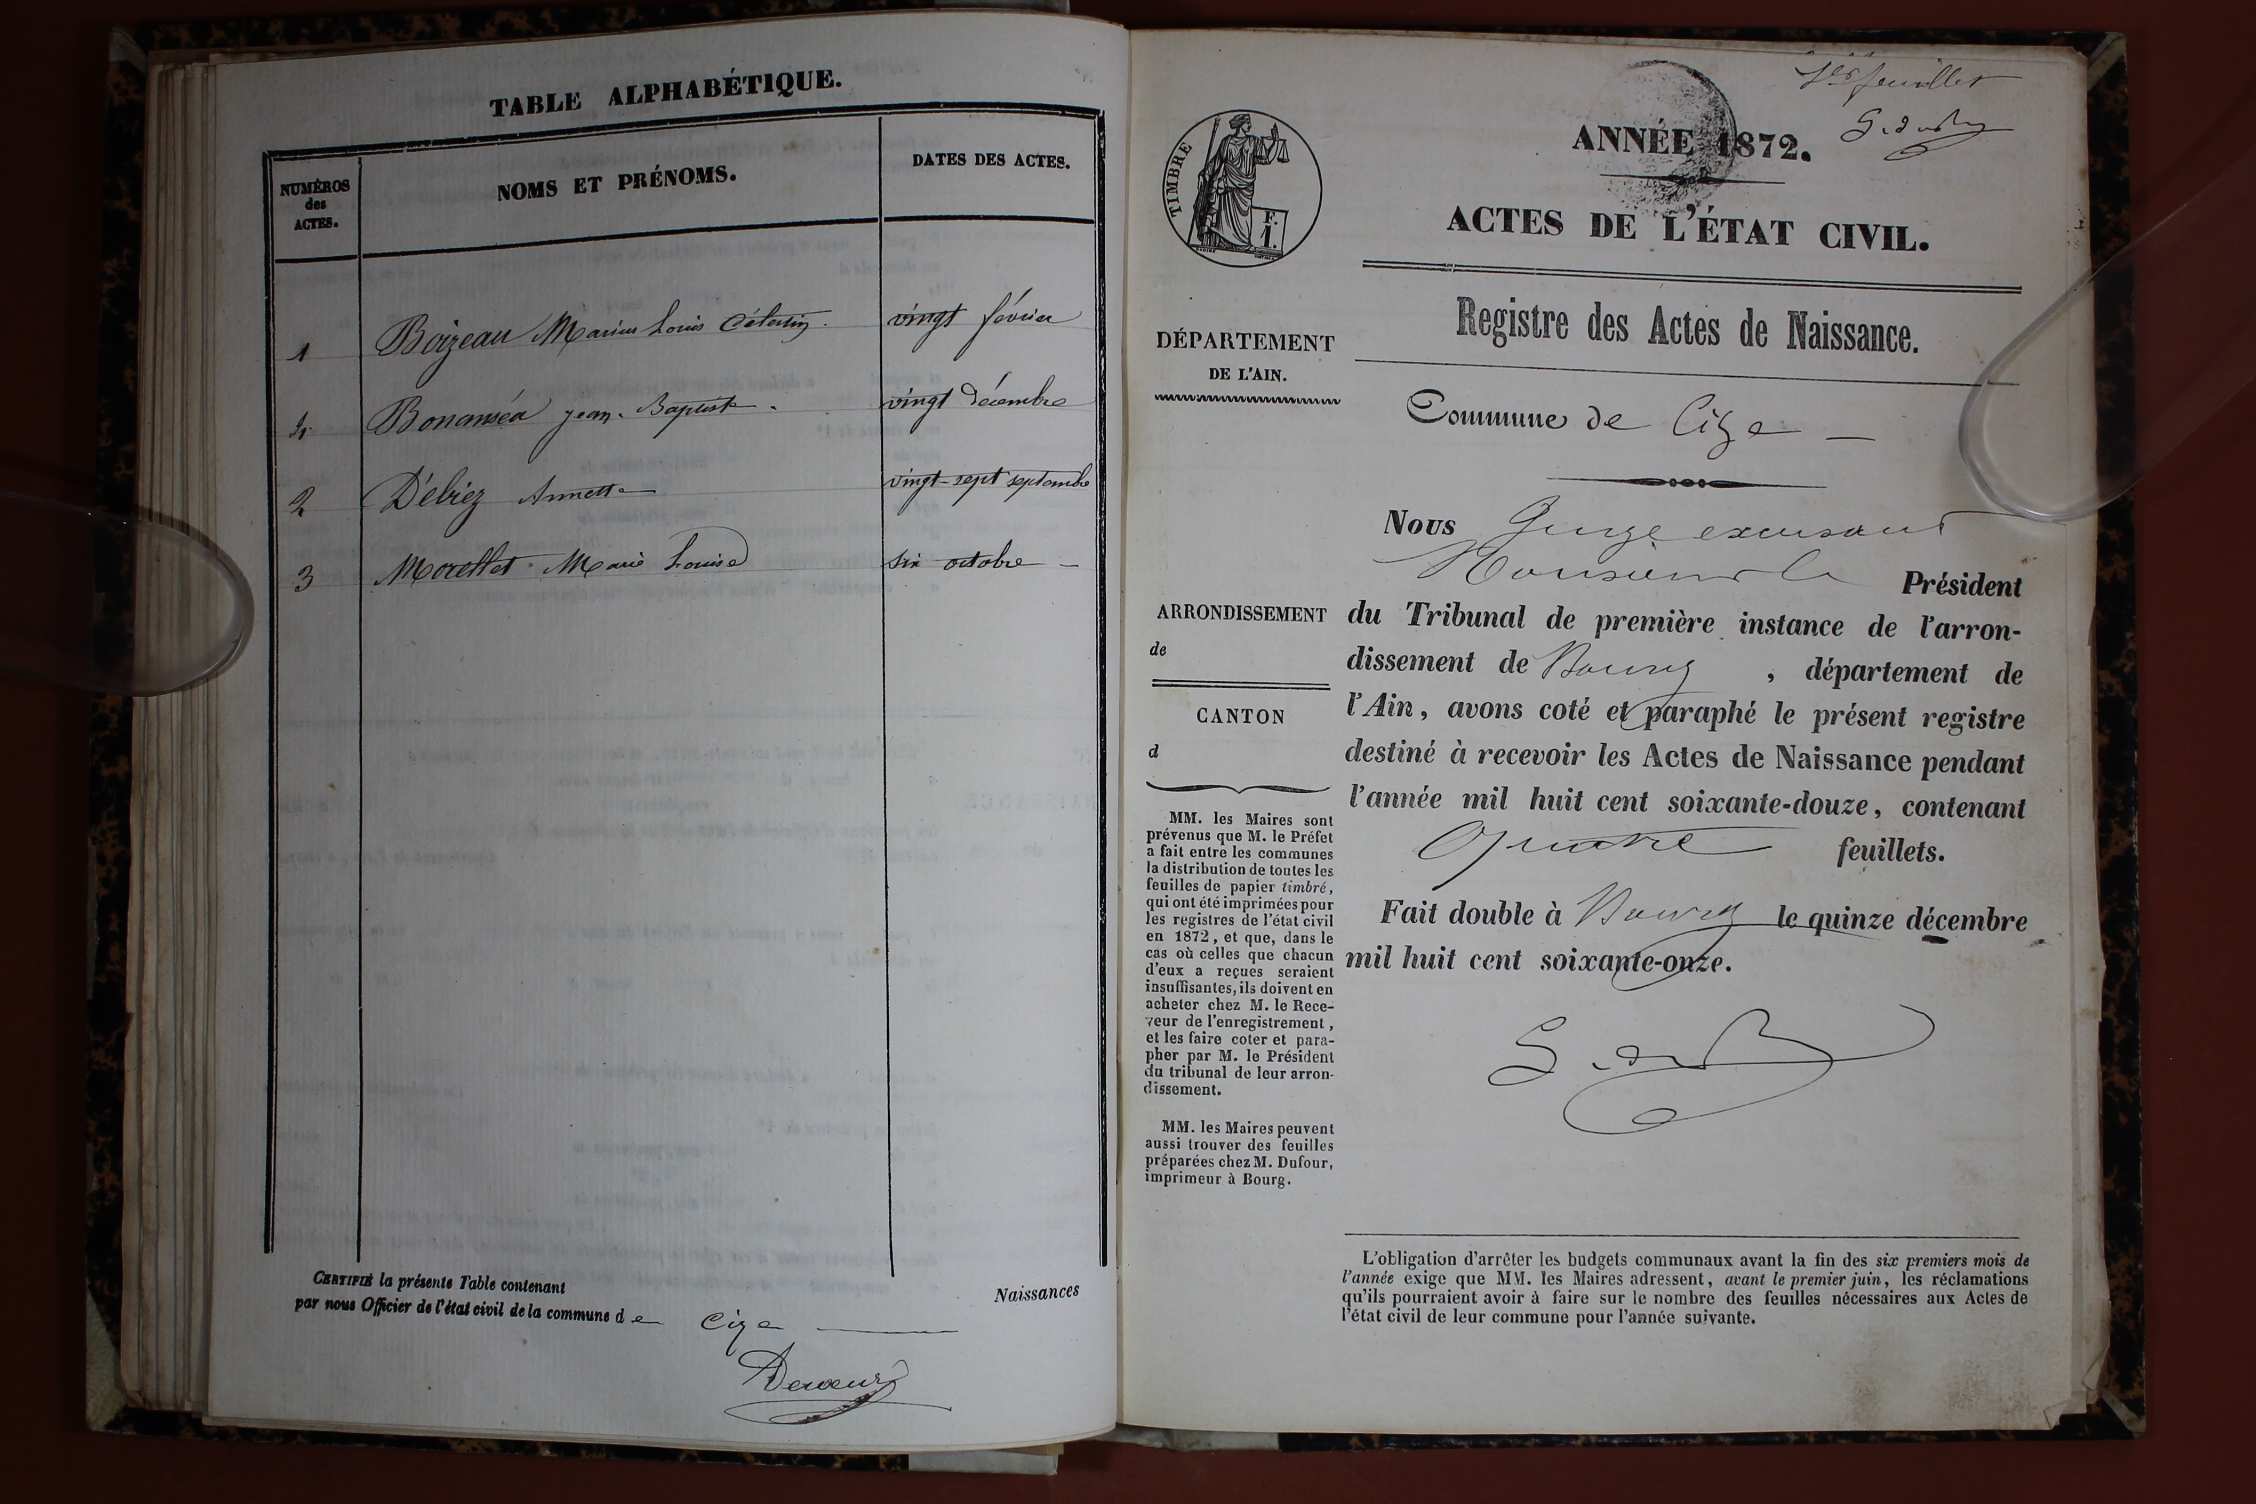 TABLE ALPHABÉTIQUE.
NUMÉROS
des
ACTES.
NOMS ET PRÉNOMS.
DATES DES ACTES.
1 Boizeau Marius Louis Célestin. vingt février
4 Bonanséa Jean-Baptiste. vingt décembre
2 Débiez Annette vingt-sept septembre
3 Morellet Marie Louise six octobre
CERTIFIÉ la présente Table contenant Naissances
par nous Officier de l'état civil de la commune de Cize
1er feuillet
TIMBRE
F.
1.
ANNÉE 1872.
ACTES DE L'ÉTAT CIVIL.
DÉPARTEMENT
DE L'AIN.
ARRONDISSEMENT
de
CANTON
d
MM. les Maires sont
prévenus que M. le Préfet
a fait entre les communes
la distribution de toutes les
feuilles de papier timbré,
qui ont été imprimées pour
les registres de l'état civil
en 1872, et que, dans le
cas où celles que chacun
d'eux a reçues seraient
insuffisantes, ils doivent en
acheter chez M. le Rece-
veur de l'enregistrement,
et les faire coter et para-
pher par M. le Président
du tribunal de leur arron-
dissement.
MM. les Maires peuvent
aussi trouver des feuilles
préparées chez M. Dufour,
imprimeur à Bourg.
Registre des Actes de Naissance.
Commune de Cize
Nous Juge excusant
Monsieur le Président
du Tribunal de première instance de l'arron-
dissement de Bourg, département de
l'Ain, avons coté et paraphé le présent registre
destiné à recevoir les Actes de Naissance pendant
l'année mil huit cent soixante-douze, contenant
Quatre feuillets.
Fait double à Bourg le quinze décembre
mil huit cent soixante-onze.
L'obligation d'arrêter les budgets communaux avant la fin des six premiers mois de
l'année exige que MM. les Maires adressent, avant le premier juin, les réclamations
qu'ils pourraient avoir à faire sur le nombre des feuilles nécessaires aux Actes de
l'état civil de leur commune pour l'année suivante.